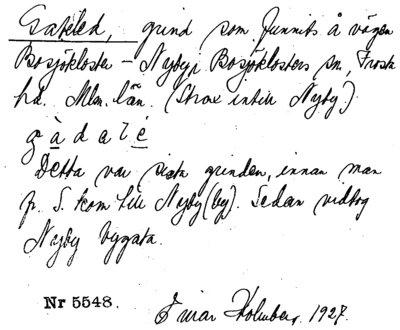 Gateled, grind som funnits å vägen
Bosjökloster - Nyby i Bosjöklosters sn, Frosta
hd. Mlm. län. (Strax intill Nyby.)
g à d a l é
Detta var sista grinden, innan man
fr. S. kom till Nyby (by). Sedan vidtog
Nyby bygata.
Nr 5548.
Einar Holmberg. 1927.